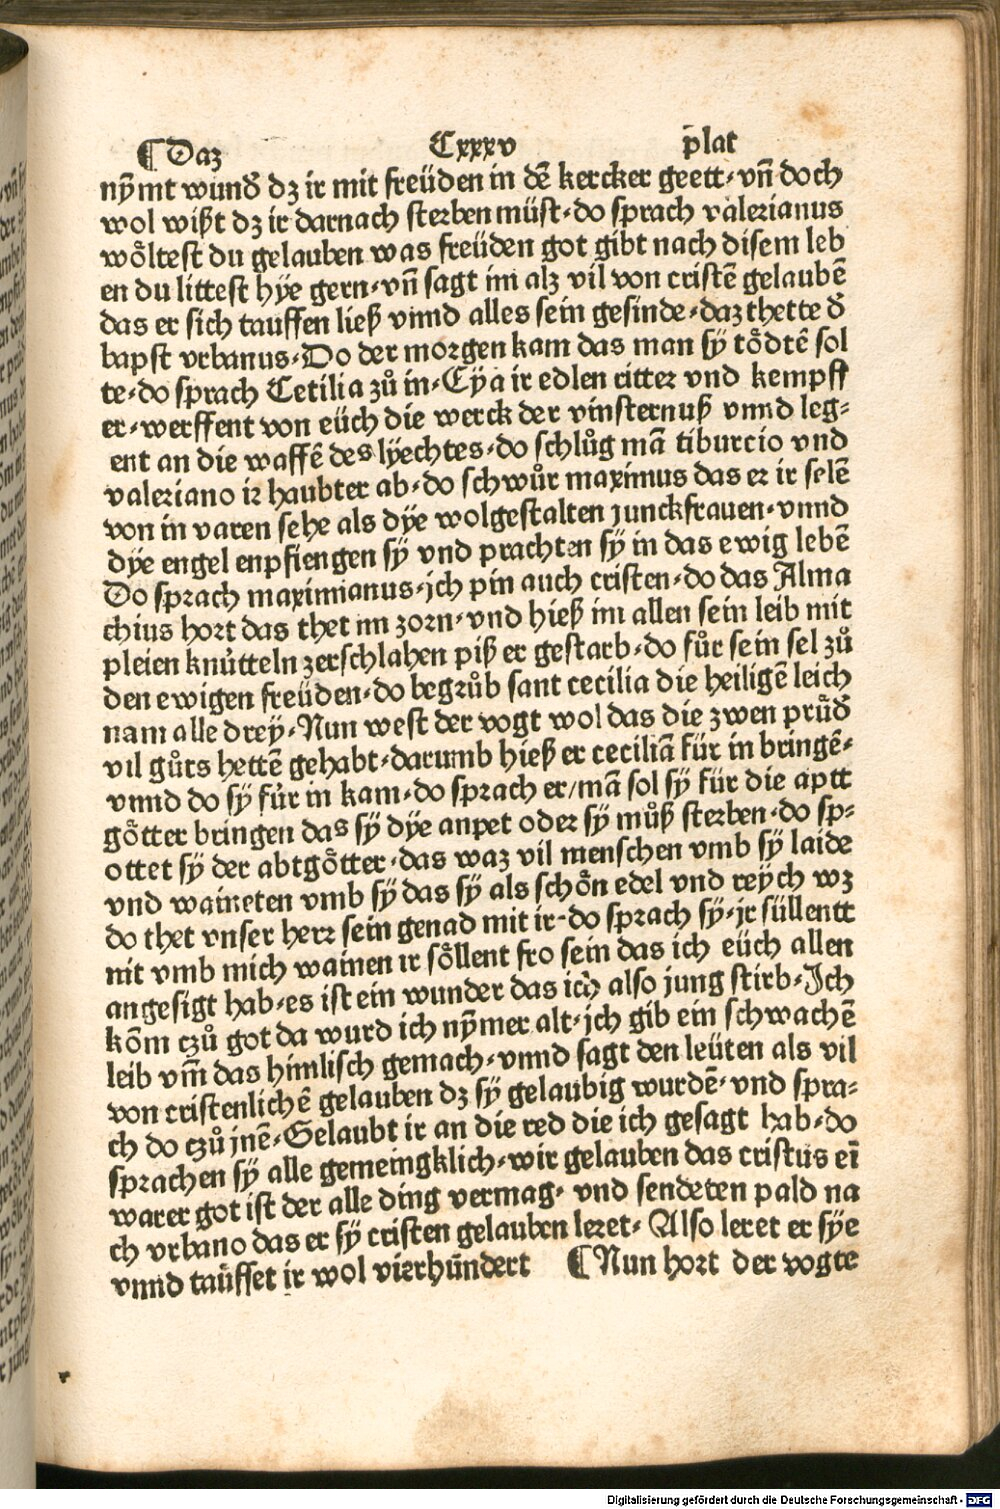 ¶ Daz Cxxxv plat
nÿmt wunđ dz ir mit freüden in dē kercker geett⸗ vñ doch
wol wißt dz ir darnach sterben müst⸗ do sprach valerianus
wöltest du gelauben was freüden got gibt nach disem leb
en du littest hÿe gern⸗ vñ sagt im alz vil von cristē gelaubē
das er sich tauffen ließ vnnd alles sein gesinde⸗ daz thette đ
bapst vrbanus⸗ Do der morgen kam das man sÿ tödtē sol
te⸗ do sprach Cecilia zů in⸗ Eÿa ir edlen ritter vnd kempff
er⸗ werffent von eüch die werck der vinsternuß vnnd leg⸗
ent an die waffē des lÿechtes⸗ do schlůg mā tiburcio vnd
valeriano ir haubter ab⸗ do schwůr maximus das er ir selē
von in varen sehe als dÿe wolgestalten junckfrauen⸗ vnnd
dÿe engel enpfiengen sÿ vnd prachten sÿ in das ewig lebē
Do sprach maximianus⸗ jch pin auch cristen⸗ do das Alma
chius hort das thet im zorn⸗ vnd hieß im allen sein leib mit
pleien knütteln zerschlahen piß er gestarb⸗ do fůr sein sel zů
den ewigen freüden⸗ do begrůb sant cecilia die heiligē leich
nam alle dreÿ⸗ Nun west der vogt wol das die zwen průđ
vil gůts hettē gehabt⸗ darumb hieß er ceciliā für in bringē⸗
vnnd do sÿ für in kam⸗ do sprach er/ mā sol sÿ für die aptt
götter bringen das sÿ dÿe anpet oder sÿ můß sterben⸗ do sp⸗
ottet sÿ der abtgötter⸗ das waz vil menschen vmb sÿ laide
vnd waineten vmb sÿ das sÿ als schön edel vnd reÿch wz
do thet vnser herr sein genad mit ir⸗ do sprach sÿ⸗ jr süllentt
nit vmb mich wainen ir söllent fro sein das ich eüch allen
angesigt hab⸗ es ist ein wunder das ich also jung stirb⸗ Jch
kōm czů got da wurd ich nÿmer alt⸗ jch gib ein schwachē
leib vm̄ das himlisch gemach⸗ vnnd sagt den leüten als vil
von cristenlichē gelauben dz sÿ gelaubig wurdē⸗ vnd spra⸗
ch do czů jnē⸗ Gelaubt ir an die red die ich gesagt hab⸗ do
sprachen sÿ alle gemeingklich⸗ wir gelauben das cristus eī
warer got ist der alle ding vermag⸗ vnd sendeten pald na
ch vrbano das er sÿ cristen gelauben leret⸗ Also leret er sÿe
vnnd tauffet ir wol vierhundert ¶ Nun hort der vogte
Digitalisierung gefördert durch die Deutsche Forschungsgemeinschaft - DFG